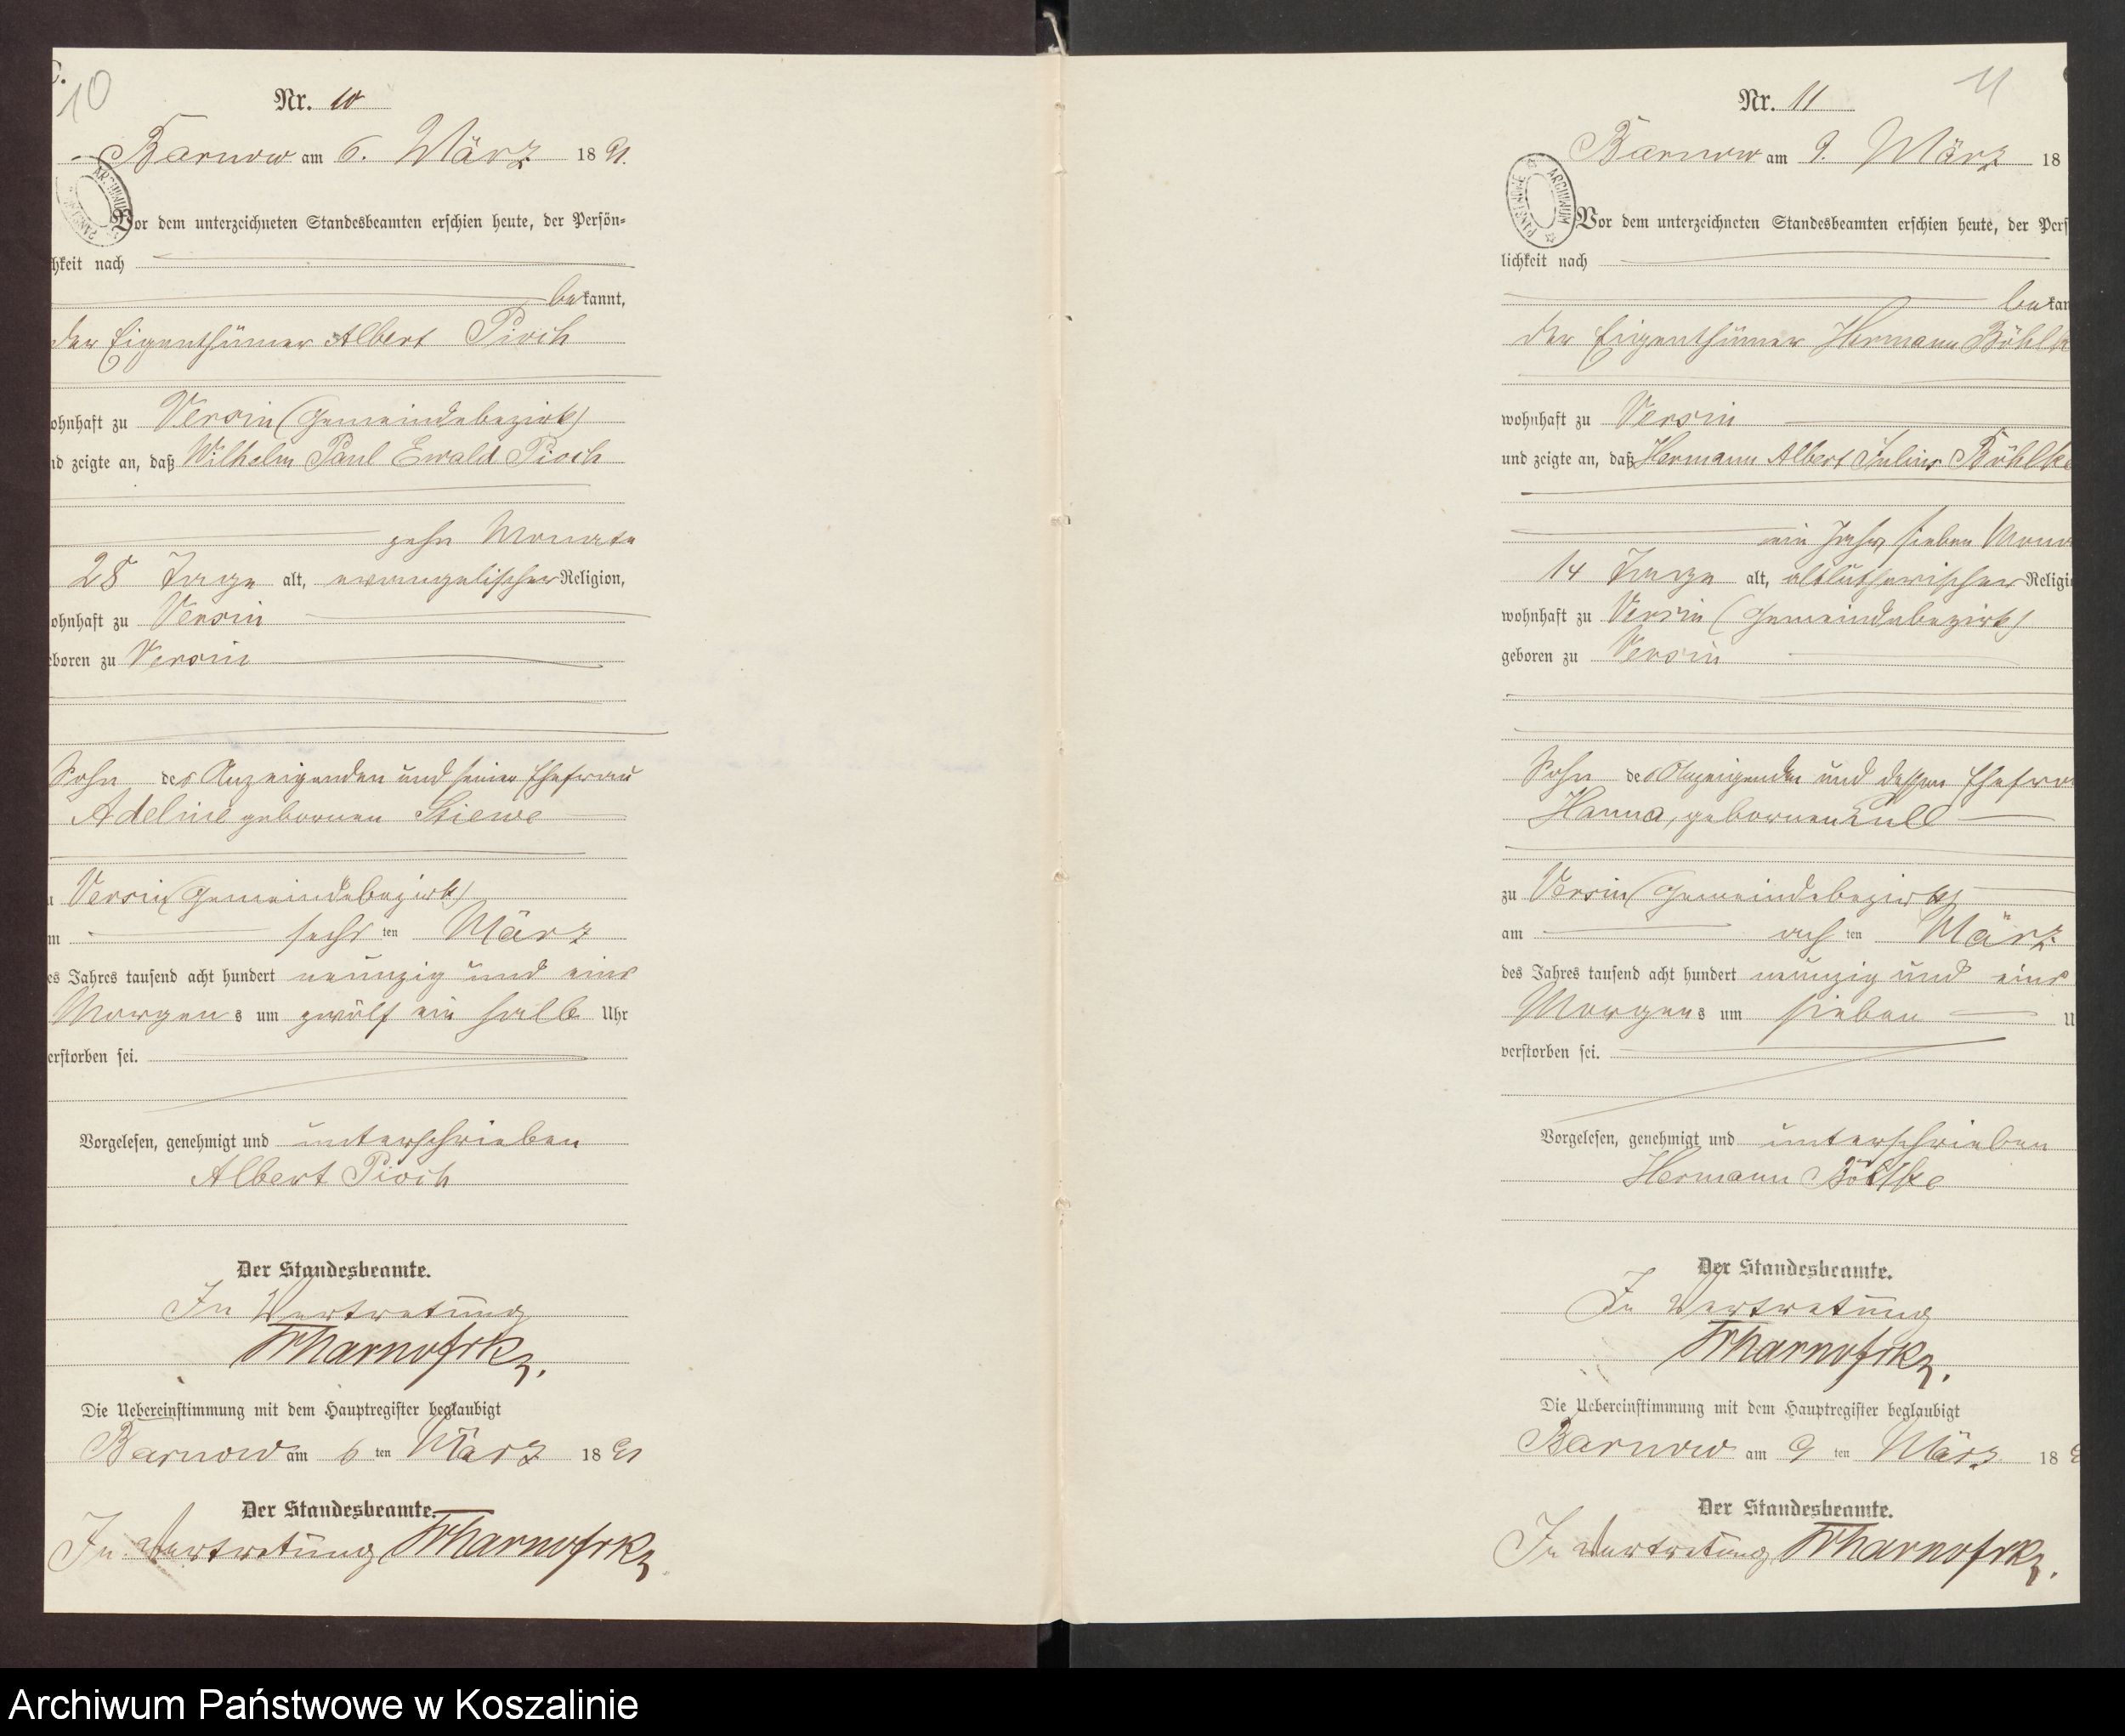 C.
10
Nr. 10
Barnow am 6. März 1891.
Vor dem unterzeichneten Standesbeamten erschien heute, der Persön-
hkeit nach
bekannt,
der Eigenthümer Albert Pioch
ohnhaft zu Versin (Gemeindebezirk)
nd zeigte an, daß Wilhelm Paul Ewald Pioch
zehn Monate
28 Tage alt, evangelischer Religion,
ohnhaft zu Versin
eboren zu Versin
Sohn des Anzeigenden und seiner Ehefrau
Adeline gebornen Stiewe
u Versin (Gemeindebezirk)
m sechsten März
es Jahres tausend acht hundert neunzig und eins
Morgens um zwölf ein halb Uhr
erstorben sei.
Vorgelesen, genehmigt und unterschrieben
Albert Pioch
Der Standesbeamte.
In Vertretung
Die Uebereinstimmung mit dem Hauptregister beglaubigt
Barnow am 6ten März 1891
Der Standesbeamte.
In Vertretung
11
Nr. 11
Barnow am 9. März 18
ARCHIWUM PAŃSTWOWE
Vor dem unterzeichneten Standesbeamten erschien heute, der Pers
lichkeit nach
bekan
der Eigenthümer Hermann Böhlk
wohnhaft zu Versin
und zeigte an, daß Hermann Albert Julius Böhlke
ein Jahr sieben Mona
14 Tage alt, altlutherischer Religi
wohnhaft zu Versin (Gemeindebezirk)
geboren zu Versin
Sohn des Anzeigenden und dessen Ehefra
Hanna, gebornen
zu Versin (Gemeindebezirk)
am achten März
des Jahres tausend acht hundert neunzig und eins
Morgens um sieben U
verstorben sei.
Vorgelesen, genehmigt und unterschrieben
Hermann Böhlke
Der Standesbeamte.
In Vertretung
Die Uebereinstimmung mit dem Hauptregister beglaubigt
Barnow am 9ten März 18
Der Standesbeamte.
In Vertretung
Archiwum Państwowe w Koszalinie